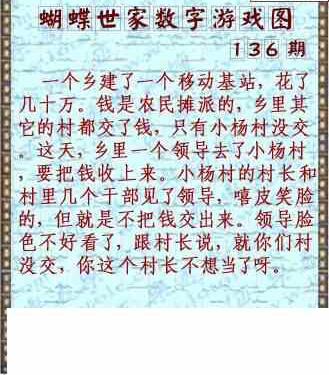 蝴蝶世家数字游戏图
136期
一个乡建了一个移动基站，花了
几十万。钱是农民摊派的，乡里其
它的村都交了钱，只有小杨村没交
。这天，乡里一个领导去了小杨村
，要把钱收上来。小杨村的村长和
村里几个干部见了领导，嘻皮笑脸
的，但就是不把钱交出来。领导脸
色不好看了，跟村长说，就你们村
没交，你这个村长不想当了呀。